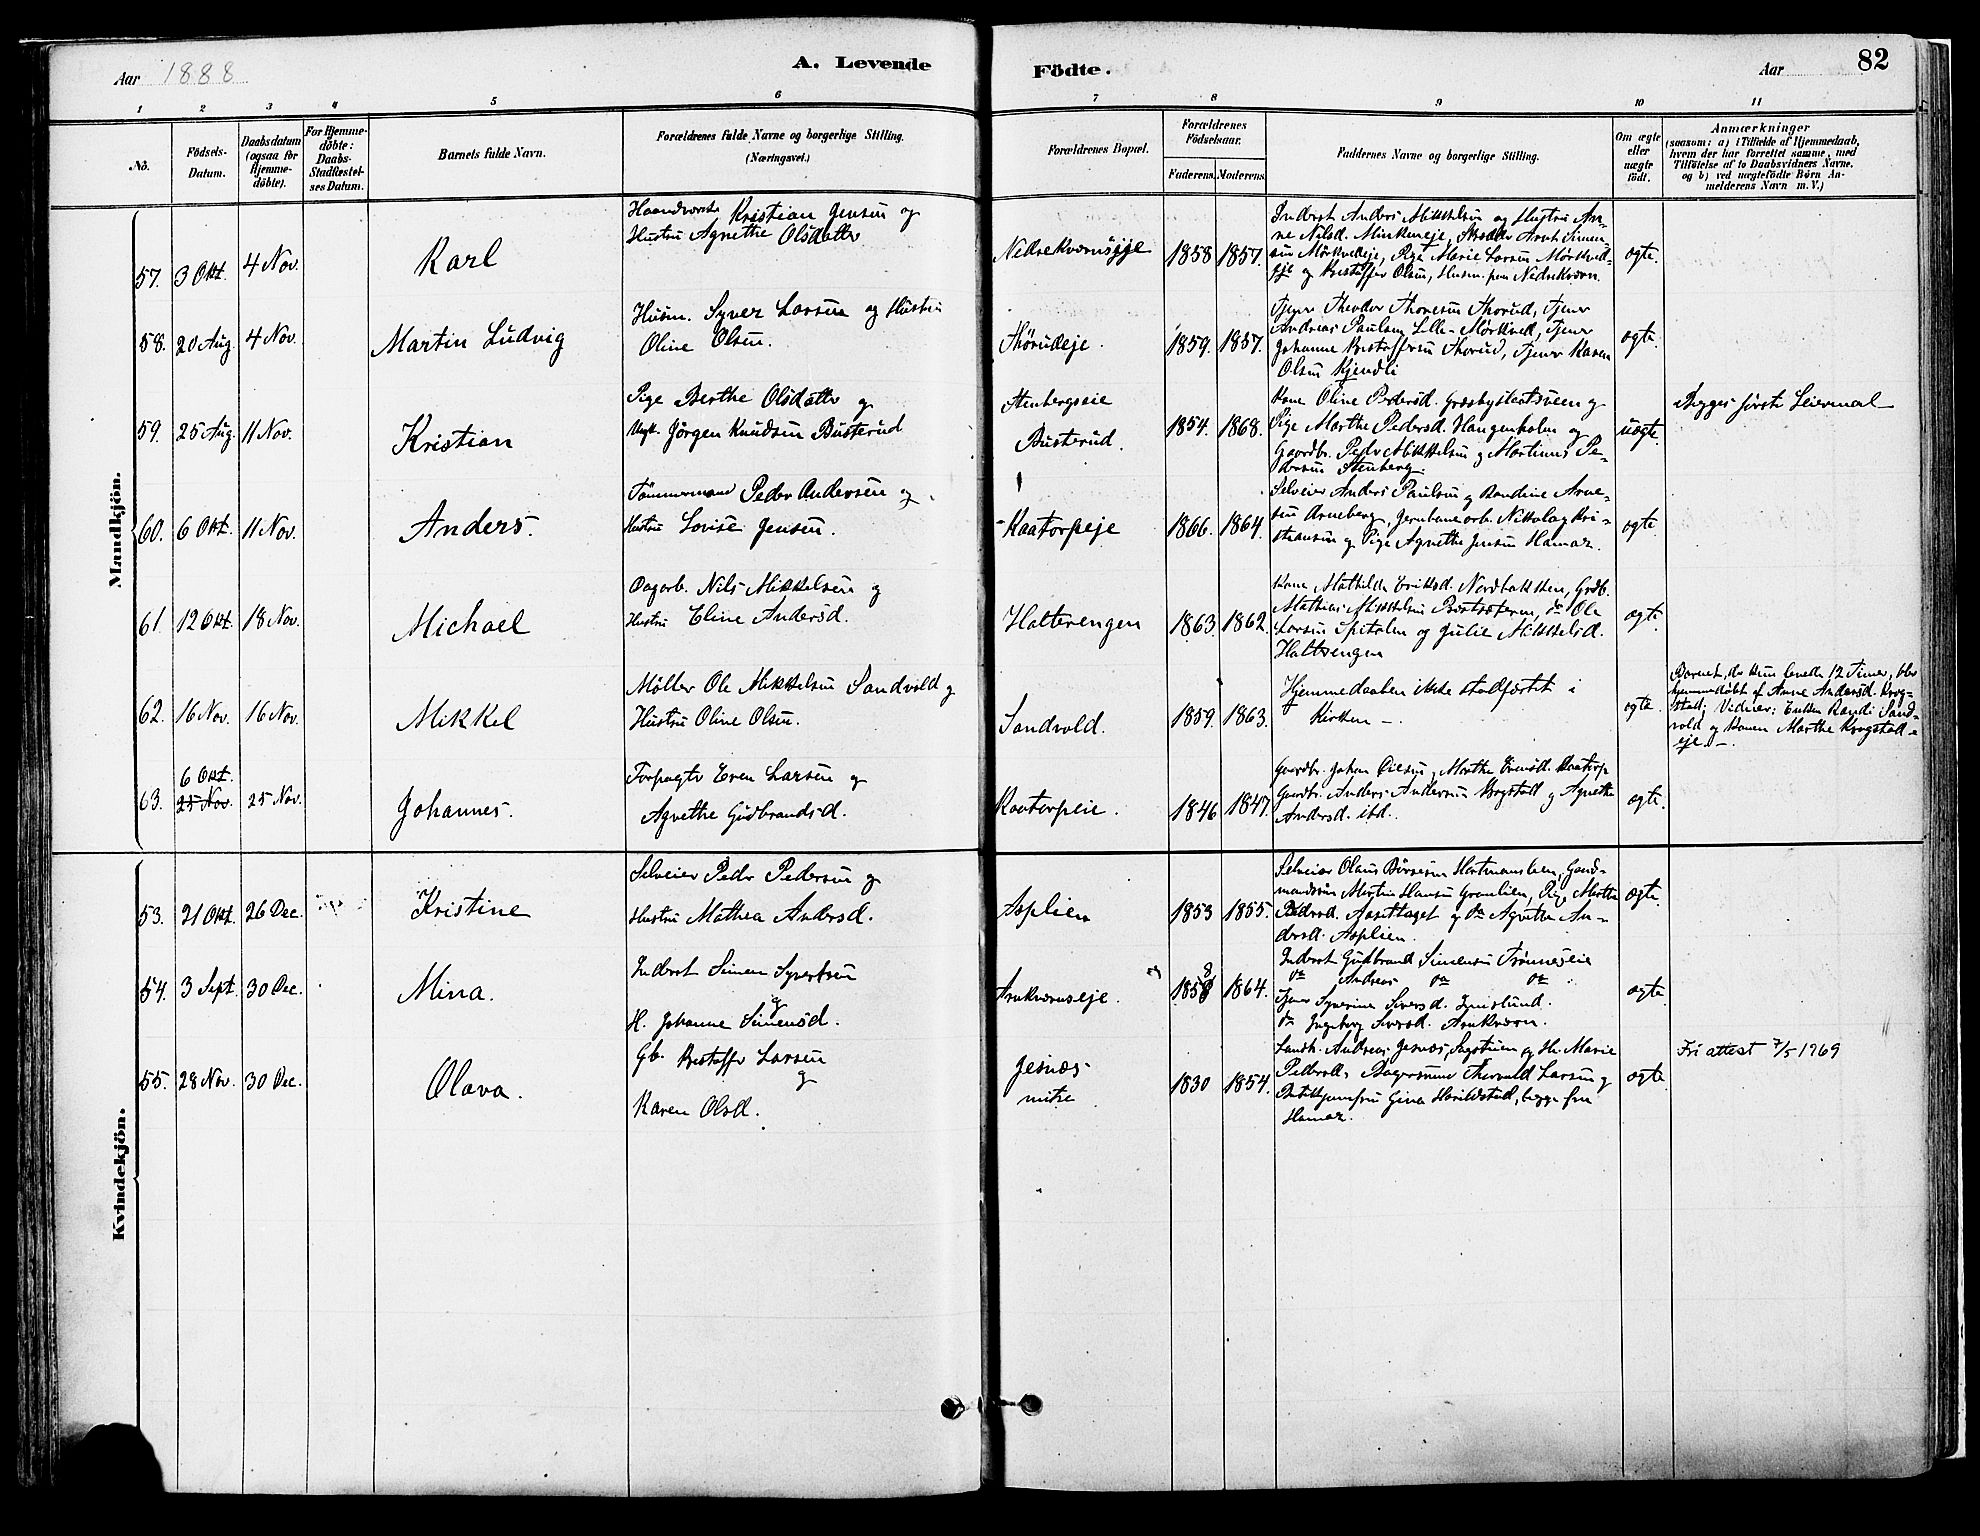 Aar 1888
A. Levende
Födte.
Aar
82
1 2 3 4 5 6 7 8 9 10 11
No.
Födsels-
Datum.
Daabsdatum
(ogsaa for
Hjemme-
döbte).
For Hjemme-
döbte:
Daabs-
Stadfæstel-
ses Datum.
Barnets fulde Navn.
Forældrenes fulde Navne og borgerlige Stilling.
(Næringsvei.)
Forældrenes Bopæl.
Forældrenes
Födselsaar.
Faderens. Moderens.
Faddernes Navne og borgerlige Stilling.
Om ægte
eller
uægte
födt.
Anmærkninger
(saasom: a) i Tilfælde af Hjemmedaab,
hvem der har forrettet samme, med
Tilföielse af to Daabsvidners Navne.
og b) ved uægtefödte Börn An-
melderens Navn m. V.)
Mandkjön.
57. 3 Okt. 4 Nov.
Karl
Kristian Jensen og
Hustru Agnethe Olsdatter
Nedrekværnseje
1858 1857.
Inderst Anders Mikkelsen og Hustru An-
ne Nilsd. Arnt Simen-
sen Mörkvedeje, Pige Marie Larsen Mörkved-
eje og Kristoffer Olsen, Husm. paa Nedrekværn.
ægte.
58. 20 Aug. 4 Nov.
Martin Ludvig
Husm. Syver Larsen og Hustru
Oline Olsen.
Thörudeje.
1859. 1857.
Tjener Theodor Thoresen Thorud, Tjener
Andreas Paulsen Lille-Mörkved, Tjener
Johanne Kristoffersen Thorud, Tjener Karen
Olsen Kjendli
ægte.
59. 25 Aug. 11 Nov.
Kristian
Pige Berthe Olsdatter og
Ungk. Jörgen Knudsen Busterud
Stenbergseie
Busterud.
1854. 1868.
Kone Oline Pedersd. Græsbystæstsveen og
Pige Marthe Pedersd. Haugenholm og
Gaardbr. Peder Mikkelsen og Martinus Pe-
dersen Stenberg.
uægte.
Begges förste Leiermaal
60. 6 Okt. 11 Nov.
Anders.
Tömmermand Peder Andersen og
Hustru Lovise Jensen.
Kaatorpeje
1866. 1864.
Selveier Anders Paulsen og Randine Arne-
sen Arneberg, Jernbanearb. Nikolay Kri-
stiansen og Pige Agnethe Jensen Hamar.
ægte.
61. 12 Okt. 18 Nov.
Michael
Dagarb. Nils Mikkelsen og
Hustru Eline Andersd.
Halterengen
1863. 1862.
Kone Mathilde Eriksd. Nordbakken, Grdb.
Mathias Mikkelsen do Ole
Larsen Spitalen og Julie Mikkelsd.
Halterengen
ægte.
62. 16 Nov. 16 Nov.
Mikkel
Möller Ole Mikkelsen Sandvold og
Hustru Oline Olsen.
Sandvold.
1859. 1863.
Hjemmedaaben ikke stadfæstet i
Kirken –.
ægte.
Barnet, der kun levede 12 Timer, blev
hjemmedöbt af Anne Andersd. Krog-
stad; Vidner: Enken Randi Sand-
vold og Konen Marthe Krogstad-
eje. –
63. 6 Okt. 25 Nov. 25 Nov.
Johannes.
Forpagter Even Larsen og
Agnethe Gudbrandsd.
Kaatorpeie.
1846 1847.
Gaardbr. Johan Olesen, Marthe Evensd. Kaatorp
Gaardbr. Anders Andersen Krogstad og Agnethe
Andersd. ibd.
ægte.
Kvindekjön.
53. 21 Okt. 26 Dec.
Kristine
Selveier Peder Pedersen og
Hustru Mathea Andersd.
Asplien
1853 1855.
Selveier Olaus Börresen Gaard-
mandssön Martin Hansen Granlien, Pige Marthe
Pedersd. Aasettaget og do Agnethe An-
dersd. Asplien.
ægte.
54. 3 Sept. 30 Dec.
Mina.
Inderst Simen Syvertsen
og
H. Johanne Simensd.
Arnkværnseje.
1858 1864.
Inderst Gudbrand Simensen Trönneseie
do Andreas do do
Tjener Syverine Siversd.
do Ingeborg Siversd. Arnkværn.
ægte
55. 28 Nov. 30 Dec.
Olava.
Gb. Kristoffer Larsen
og
Karen Olsd.
Jesnæs-
nitre
1830 1854.
Landh. Andreas Jesnæs, og Hu. Marie
Pedersd. Bagersvend Thorvald Larsen og
Butikjomfru Gina Harildstad, begge fra
Hamar.
ægte
Fri attest 7/5 1969